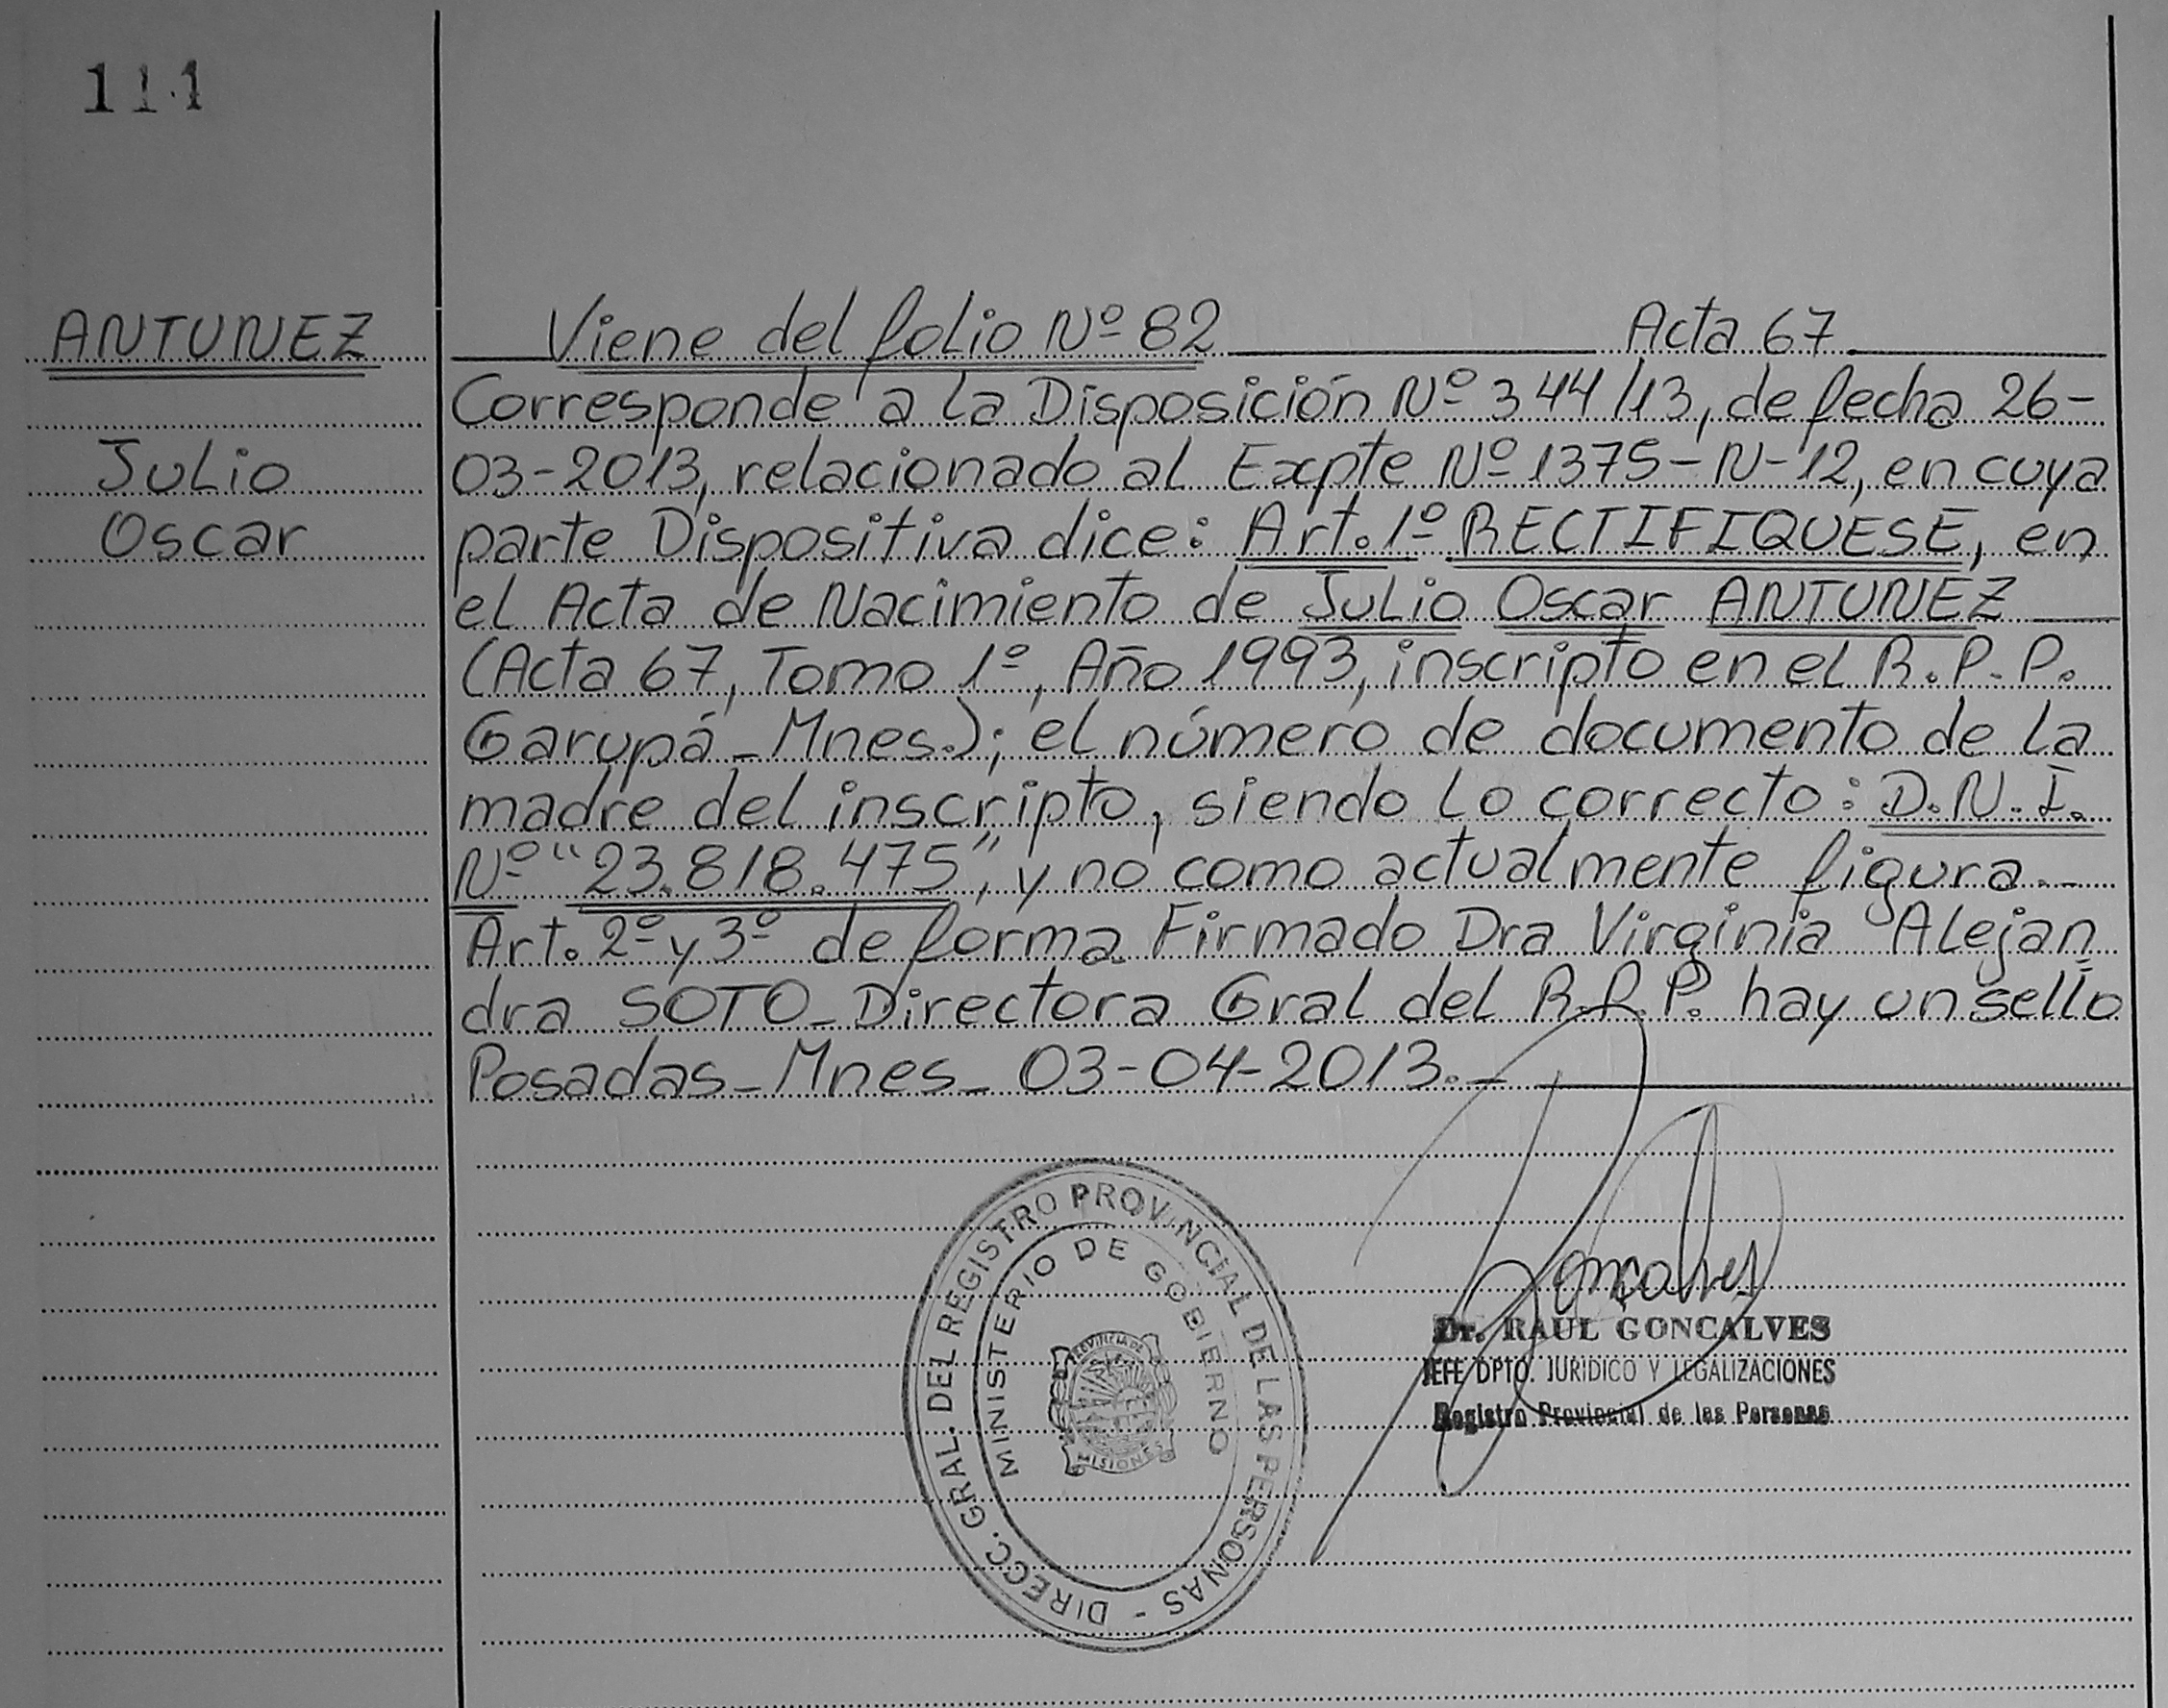 114
ANTUNEZ
Julio
Oscar
Viene del folio Nº 82 Acta 67
Corresponde a la Disposición Nº 344/13, de fecha 26-
03-2013, relacionado al Expte Nº 1375-N-12, en cuya
parte Dispositiva dice: Art. 1º RECTIFIQUESE, en
el Acta de Nacimiento de Julio Oscar ANTUNEZ
(Acta 67, Tomo 1º, Año 1993, inscripto en el R.P.P.
Garupá-Mnes.); el número de documento de la
madre del inscripto, siendo lo correcto: D.N.I.
Nº "23.818.475", y no como actualmente figura.-
Art. 2º y 3º de forma. Firmado Dra Virginia Alejan=
dra SOTO-Directora Gral del R.P.P. hay un sello
Posadas-Mnes- 03-04-2013.-
DIRECC. GRAL. DEL REGISTRO PROVINCIAL DE LAS PERSONAS -
MINISTERIO DE GOBIERNO
PROVINCIA DE
MISIONES
Goncalves
Dr. RAUL GONCALVES
JEFE DPTO. JURIDICO Y LEGALIZACIONES
Registro Provincial de las Personas